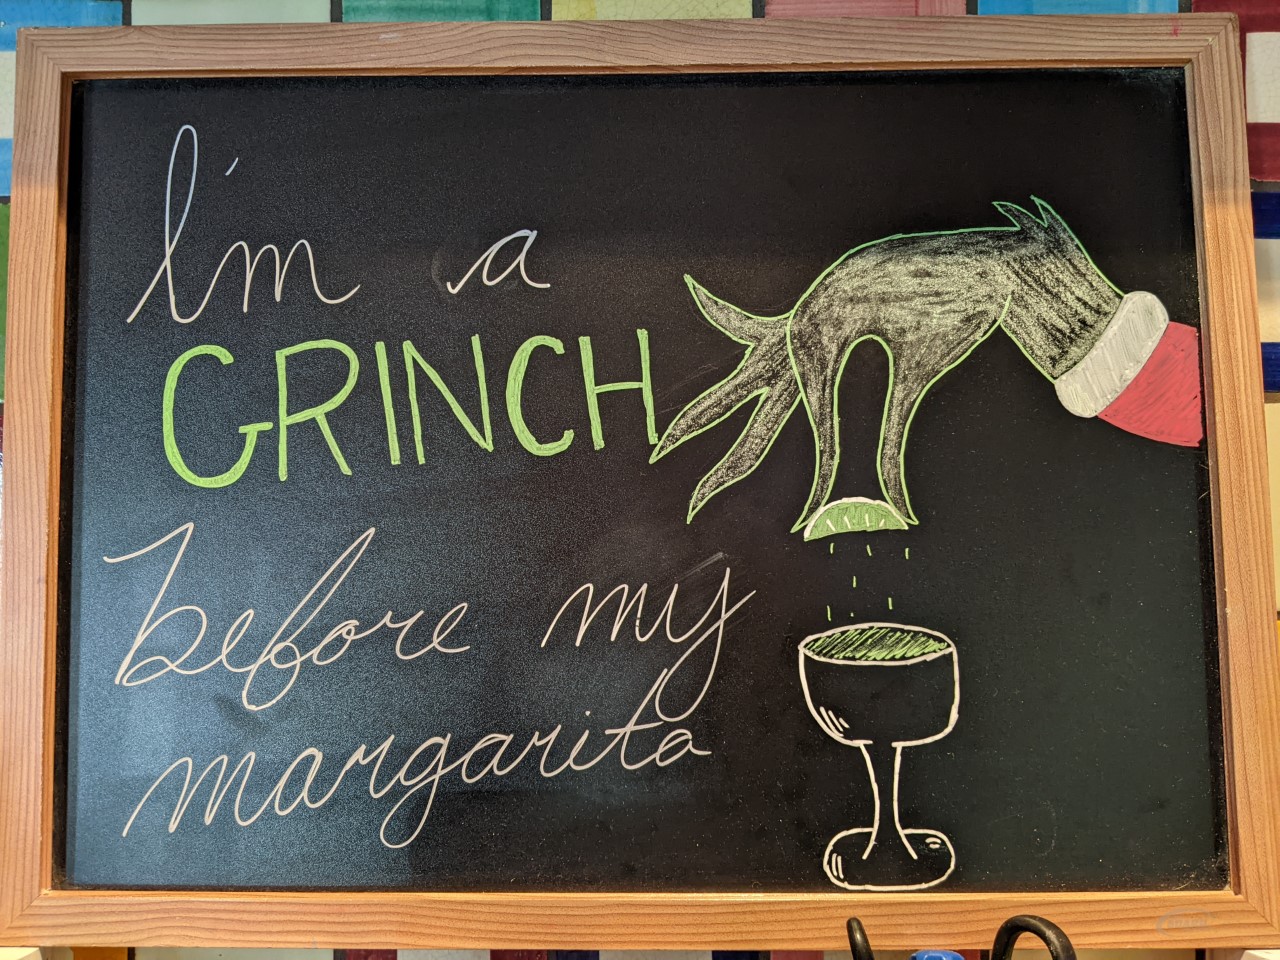 I'm a
GRINCH
before my
margarita